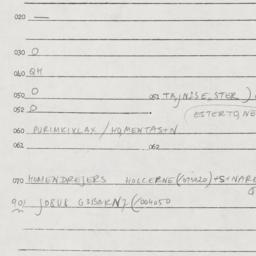 020 —
030 O
040 QM
050 O 051 TAJNISE, STER)
052 O ESTERTQNE
060 PURIMKIVLAX / HQMENTAS+N
061 062
070 HUMENDREJERS HOLLERNE(/075020)+S+NARE
901 JOBU8 G3BBKN2(/004050